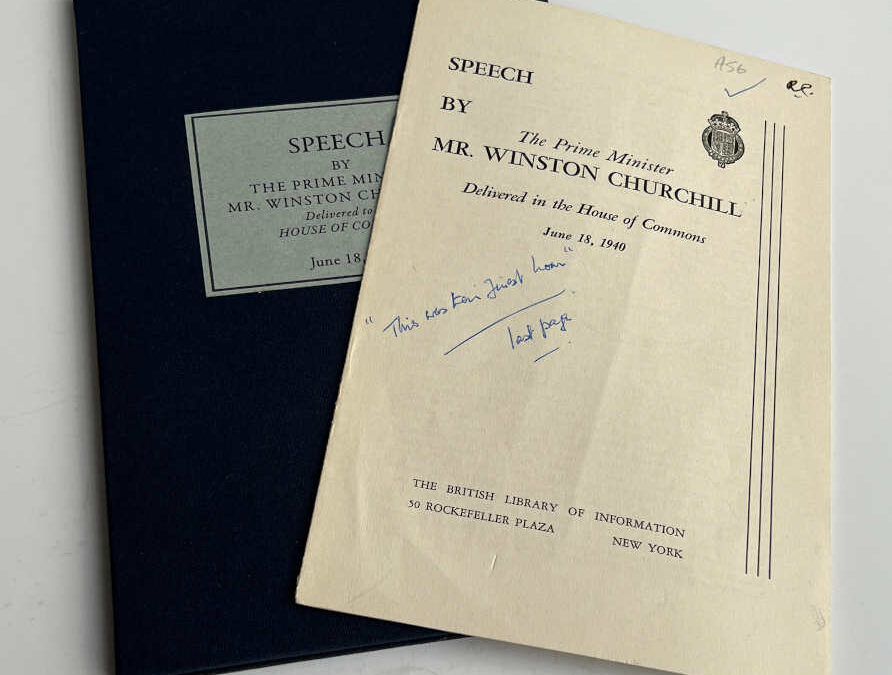 SPEECH
BY
THE PRIME MIN
MR. WINSTON CH
Delivered to
HOUSE OF CO
June 18,
A56
SPEECH
BY
The Prime Minister
MR. WINSTON CHURCHILL
Delivered in the House of Commons
June 18, 1940
"This was their finest hour"
last page.
THE BRITISH LIBRARY OF INFORMATION
50 ROCKEFELLER PLAZA
NEW YORK